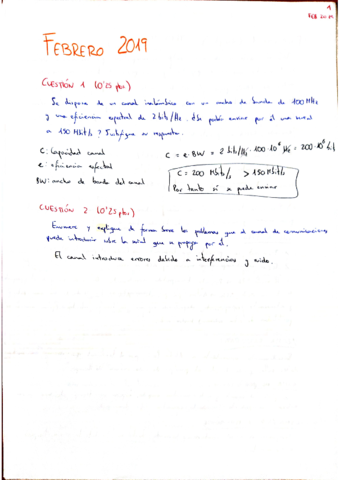 1
FEB 2019
FEBRERO 2019
CUESTIÓN 1 (0'25 ptos)
Se dispone de un canal inalámbrico con un ancho de banda de 100 MHz
y una eficiencia espectral de 2 bits/Hz. ¿Se podría enviar por él una señal
a 150 Mbit/s? Justifique su respuesta.
C: Capacidad canal
e: eficiencia espectral
BW: ancho de banda del canal
C = e·BW = 2 bits/Hz · 100·10⁶ Hz = 200·10⁶ bit
C = 200 Mbit/s > 150 Mbit/s
Por tanto sí se puede enviar
CUESTIÓN 2 (0'25 ptos)
Enumere y explique de forma breve los problemas que el canal de comunicaciones
puede introducir sobre la señal que se propaga por él.
El canal introduce errores debido a interferencias y ruido.